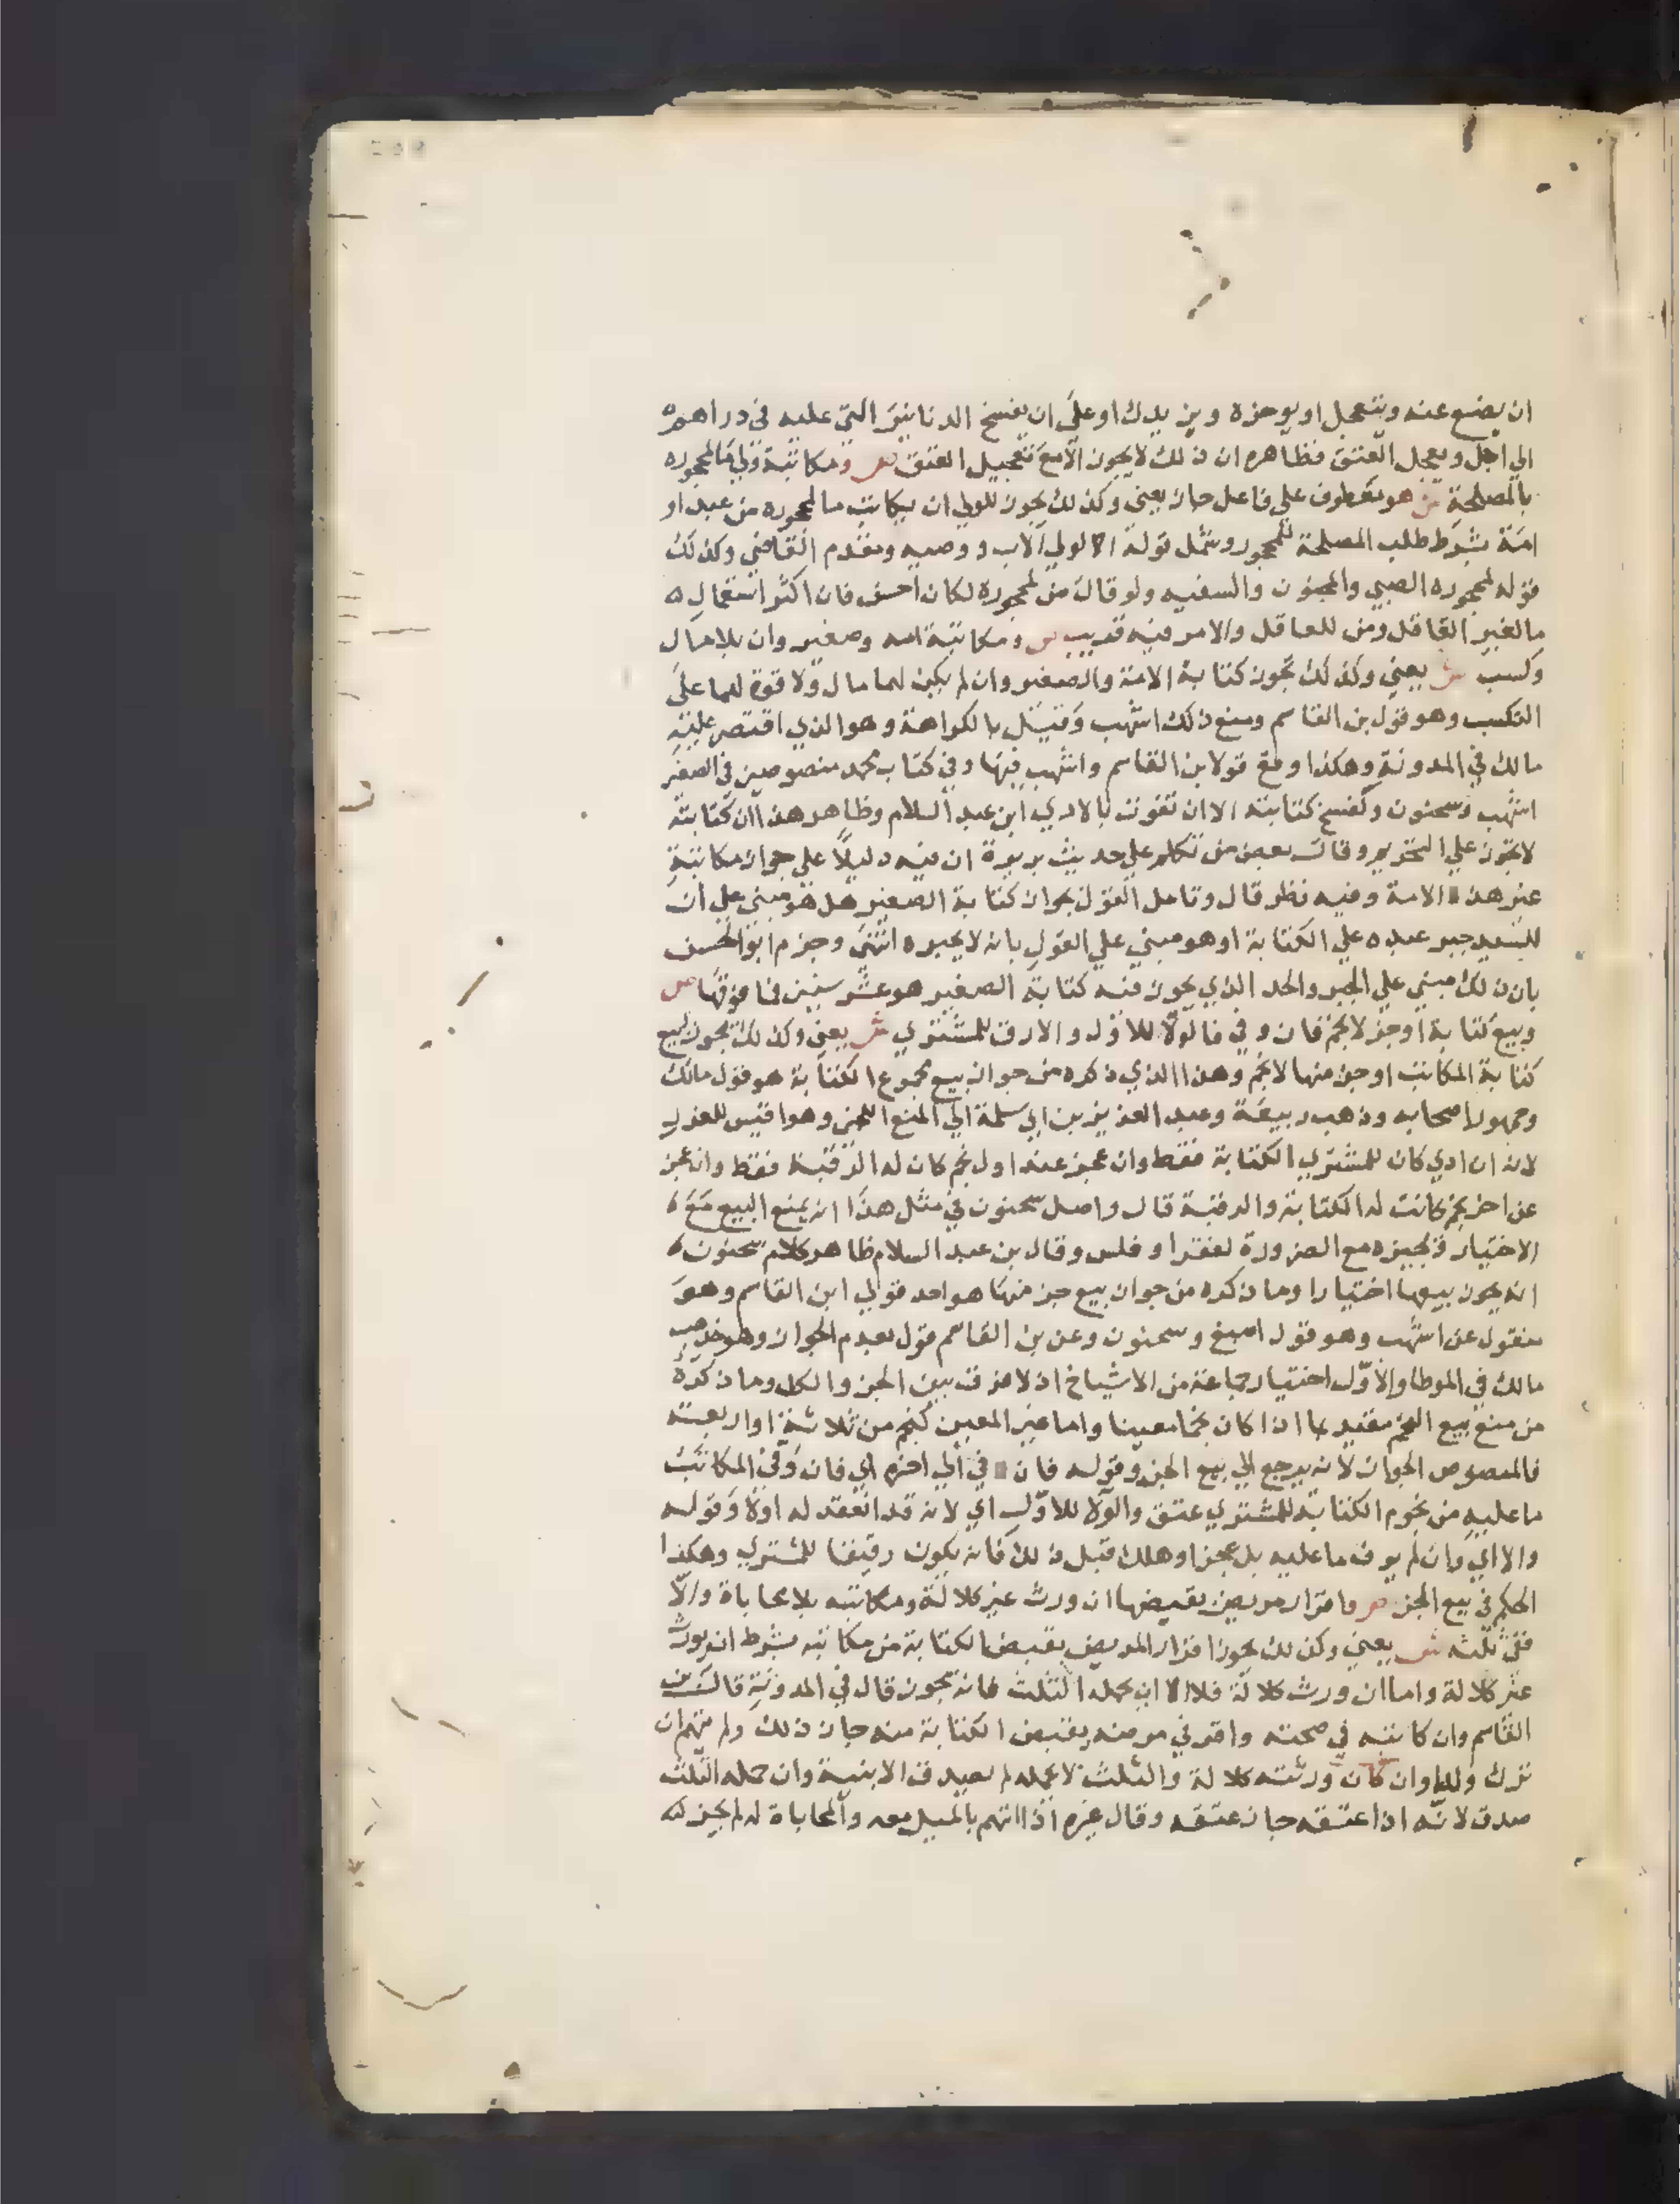 ان يضع عنه ويتعجل او يوخره ويزيدك او على ان يفسخ الدنانير التي عليه في دراهم
الي اجل ويعجل العتق فظاهره ان ذلك لا يجوز الا مع تعجيل العتق ص ومكاتبة ولي ما لمحجوره
بالمصلحة ش هو معطوف علي فاعل جاز يعني وكذلك يجوز للولي ان يكاتب ما لمحجوره من عبد او
امة بشرط طلب المصلحة للمحجور وشمل قوله الولي الاب ووصيه ومقدم القاضي وكذلك
قوله لمحجوره الصبي والمجنون والسفيه ولو قال من لمحجوره لكان احسن فان اكثر استعمال
ما لغير العاقل ومن للعاقل والامر فيه قريب ص ومكاتبة امة وصغير وان بلا مال
وكسب ش يعني وكذلك تجوز كتابة الامة والصغير وان لم يكن لهما مال ولا قوة لهما على
التكسب وهو قول بن القاسم ومنع ذلك اشهب وقيل بالكراهة وهو الذي اقتصر عليه
مالك في المدونة وهكذا وقع قولا بن القاسم واشهب فيها وفي كتاب محمد منصوصين في الصغير
اشهب وسحنون وتفسخ كتابته الا ان تفوت بالادي ابن عبد السلام وظاهر هذا ان كتابته
لا تجوز علي التحريم وقال بعض من تكلم علي حديث بريرة ان فيه دليلا علي جواز مكاتبة
غير هذه الامة وفيه نظر قال وتامل القول بجواز كتابة الصغير هل هو مبني علي ان
للسيد جبر عبده علي الكتابة او هو مبني علي القول بانه لا يجبره انتهى وجزم ابو الحسن
بان ذلك مبني علي الجبر والحد الذي يجوز فيه كتابة الصغير هو عشر سنين فما فوقها ص
وبيع كتابة او جزء لا نجم فان وفي فالولا للاول والا رق للمشتري ش يعني وكذلك يجوز بيع
كتابة المكاتب او جزء منها لا نجم وهذا الذي ذكره من جواز بيع مجموع الكتابة هو قول مالك
وجمهور اصحابه وذهب ربيعة وعبد العزيز بن ابي سلمة الي المنع للغرر وهو اقيس للغرر
لانه ان ادي كان للمشتري الكتابة فقط وان عجز عند اول نجم كان له الرقبة فقط وان عجز
عن اخر نجم كانت له الكتابة والرقبة قال واصل سحنون في مثل هذا انه يمنع البيع مع
الاختيار ويجيزه مع الضرورة لفقر او فلس وقال بن عبد السلام ظاهر كلام سحنون
انه يجوز بيعها اختيارا وما ذكره من جواز بيع جزء منها هو احد قولي ابن القاسم وهو
منقول عن اشهب وهو قول اصبغ وسحنون وعن بن القاسم قول بعدم الجواز وهو مذهب
مالك في الموطا والاول اختيار جماعة من الاشياخ اذ لا فرق بين الجزء والكل وما ذكره
من منع بيع النجم مقيد بما اذا كان نجما معينا واما غير المعين كنجم من ثلاثة او اربعة
فالمنصوص الجواز لانه يرجع الي بيع الجزء وقوله فان وفي الي اخره اي فان وفي المكاتب
ما عليه من نجوم الكتابة للمشتري عتق والولا للاول اي لانه قد انعقد له اولا وقوله
والا اي وان لم يوف ما عليه بل عجز او هلك قبل ذلك فانه يكون رقيقا للمشتري وهكذا
الحكم في بيع الجزء ص واقرار مريض بقبضها ان ورث غير كلالة ومكاتبته بلا محاباة والا
ففي ثلثه ش يعني وكذلك يجوز اقرار المريض بقبض الكتابة من مكاتبه بشرط ان يورث
غير كلالة واما ان ورث كلالة فلا الا ان يحمله الثلث فانه يجوز قال في المدونة قال بن
القاسم وان كاتبه في صحته واقر في مرضه بقبض الكتابة منه جاز ذلك ولم يتهم ان
ترك ولدا وان كان ورثته كلالة والثلث لا يحمله لم يصدق الا ببينة وان حمله الثلث
صدق لانه اذا اعتقه جاز عتقه وقال غيره اذا اتهم بالميل معه والمحاباة له لم يجز